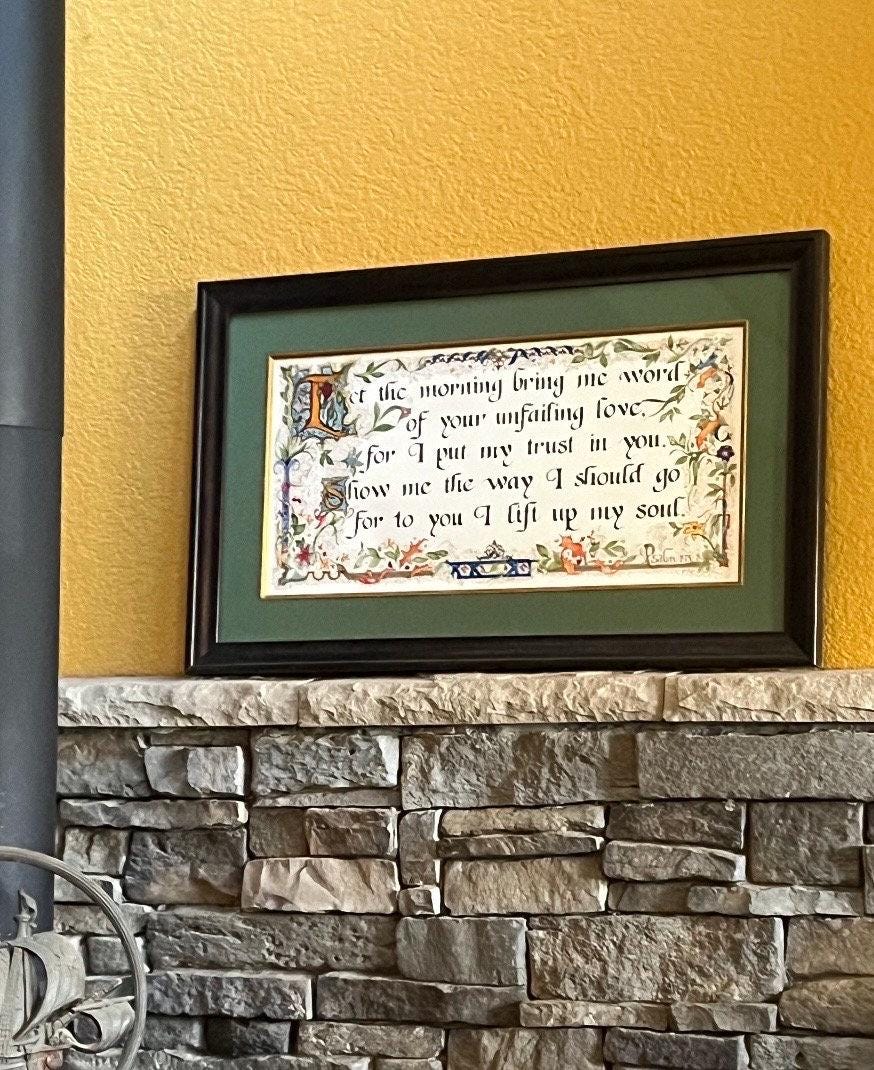 Let the morning bring me word
of your unfailing love,
for I put my trust in you.
Show me the way I should go
for to you I lift up my soul.
Psalm 143:8